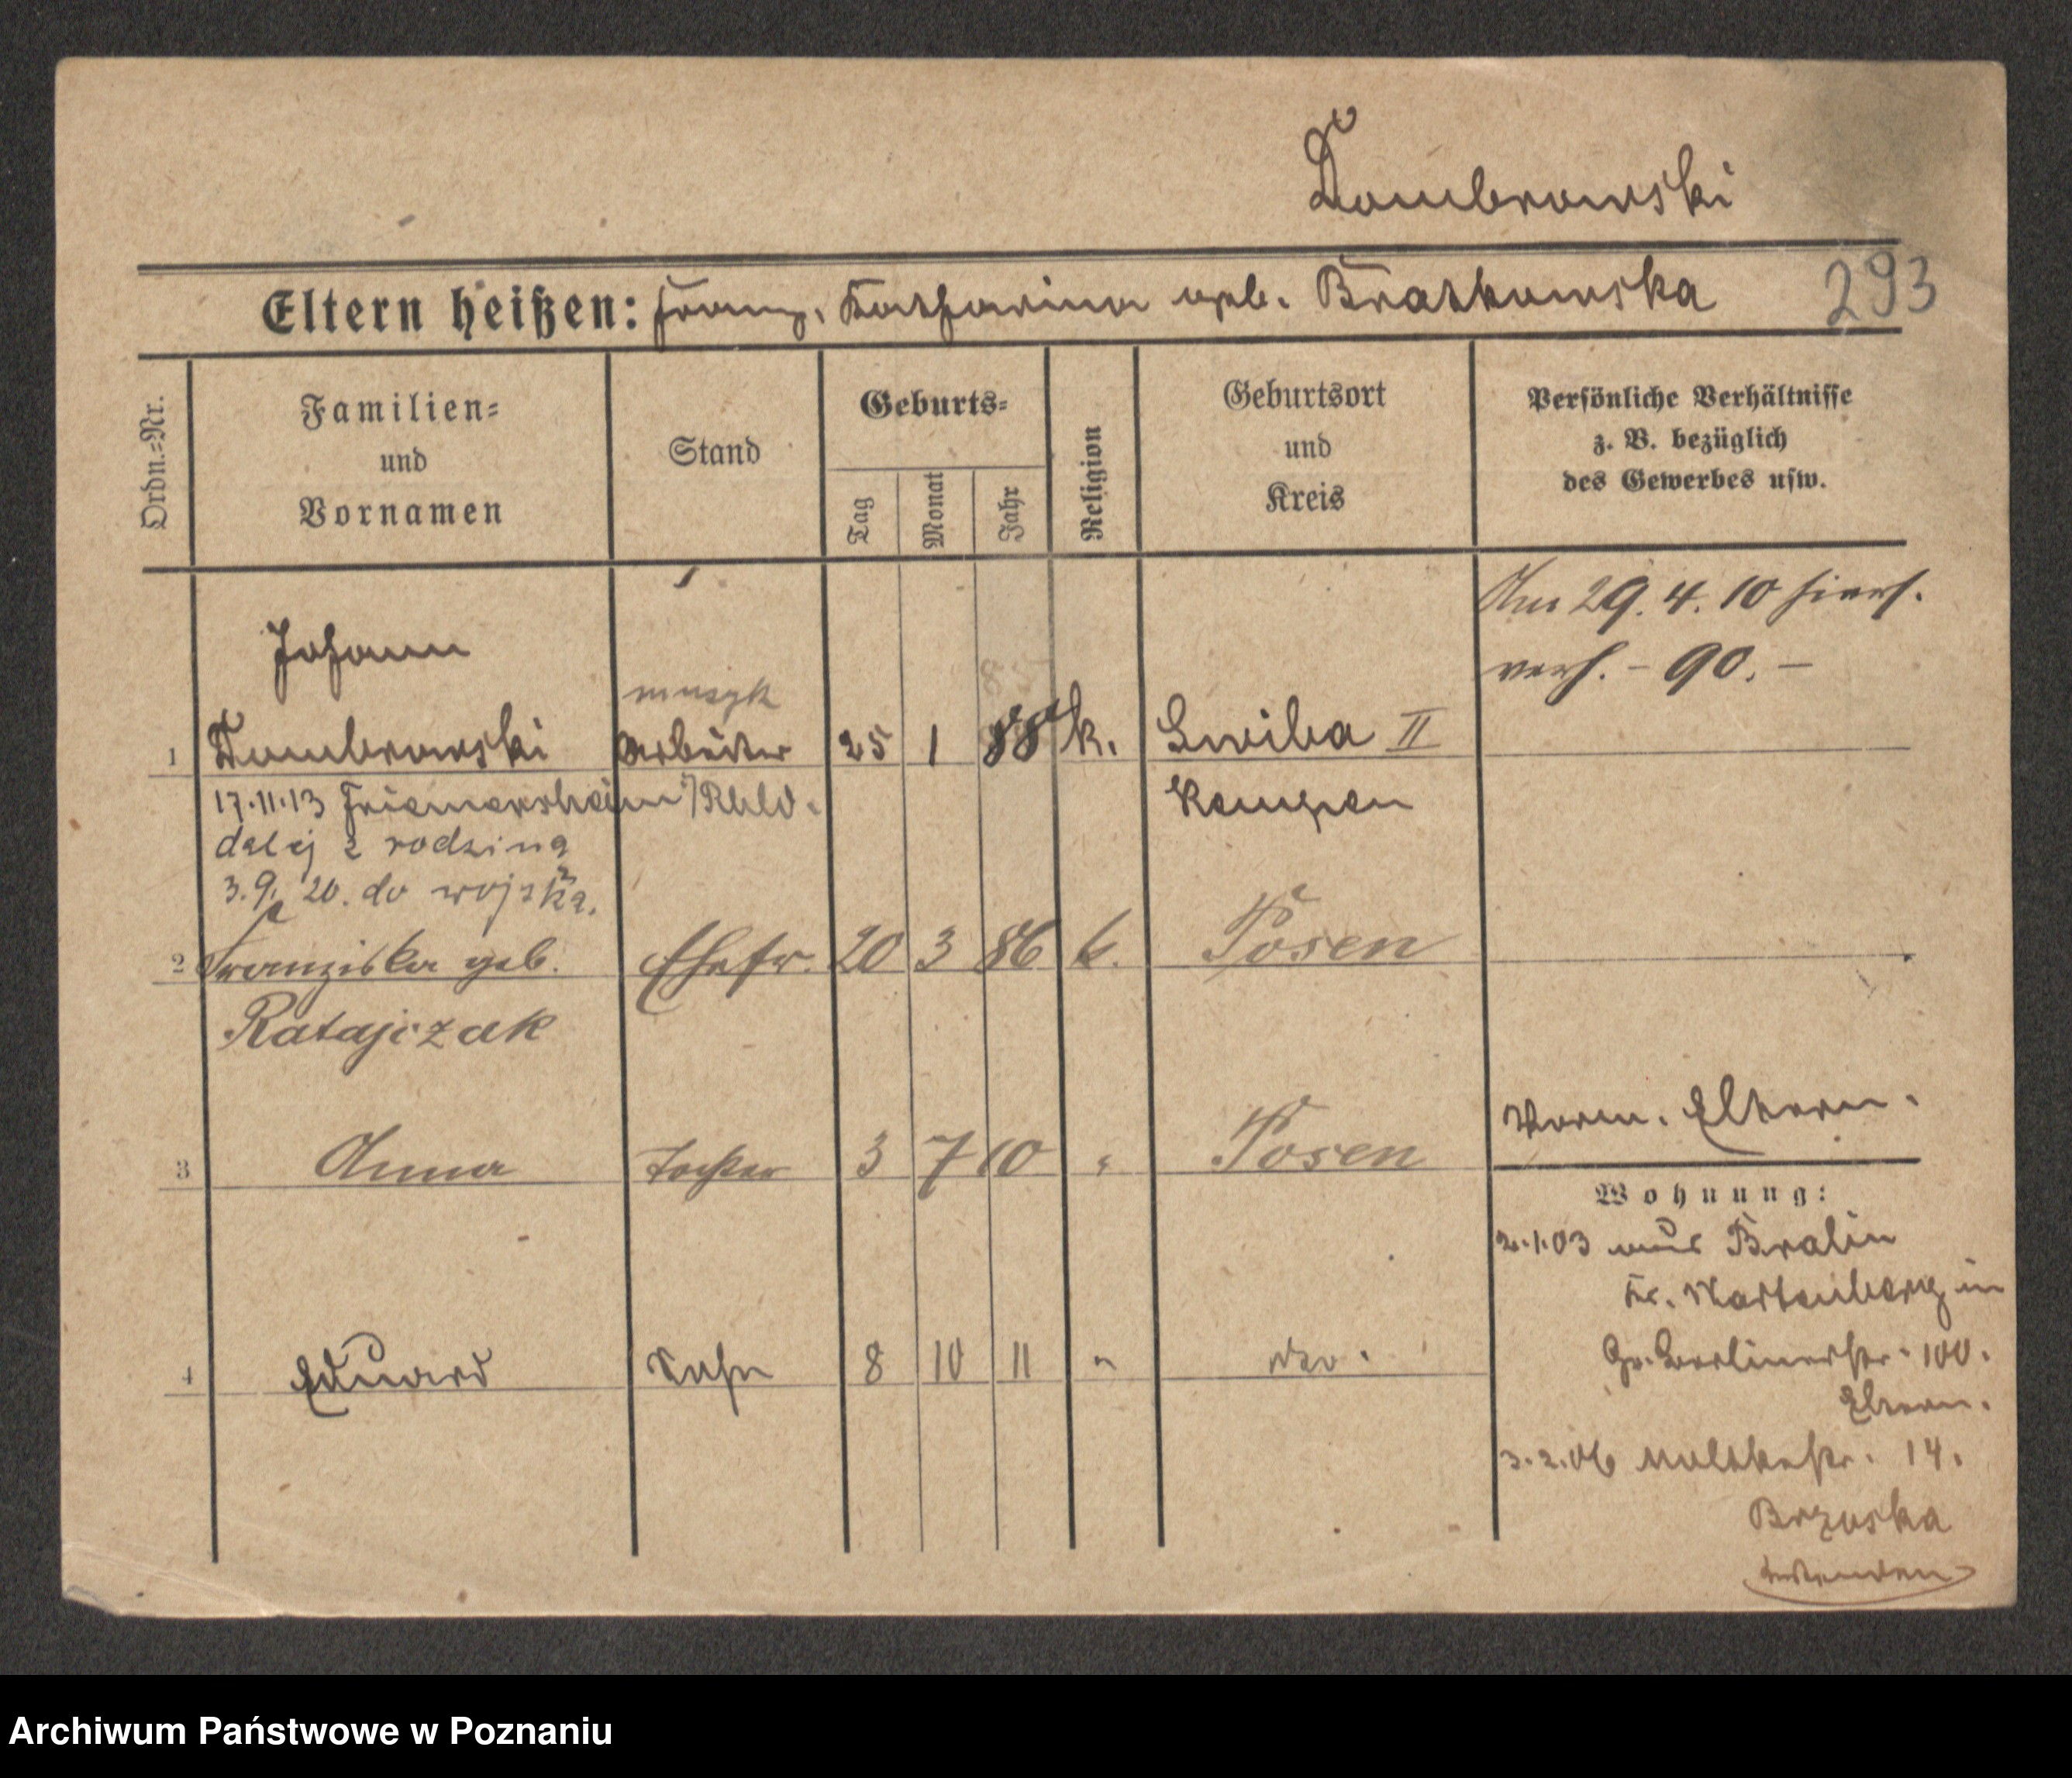 Dombrowski
Eltern heißen: Franz, Katharina geb. Bratkowska 293
Ordn.-Nr.
Familien-
und
Vornamen
Stand
Geburts-
Tag
Monat
Jahr
Religion
Geburtsort
und
Kreis
Persönliche Verhältnisse
z. B. bezüglich
des Gewerbes usw.
Am 29. 4. 10 hiers.
verh. - 90. -
Johann
muzyk 85
1 Dombrowski Arbeiter 25 1 88 k. Lwiba II
17.11.13 Friemersheim /Rhld. Kempen
dalej z rodziną
3.9. 20. do wojska.
2 Franziska geb. Ehefr. 20 3 86 k. Posen
Ratajczak
Vorm. Eltern.
3 Anna Tochter 3 7 10 " Posen
Wohnung:
2.1.03 aus Bralin
Kr. Wartenberg in
4 Eduard Sohn 8 10 11 " dto.
Gr. Berlinerstr. 100.
Eltern.
3.2.06 Moltkestr. 14.
Brzoska
Archiwum Państwowe w Poznaniu